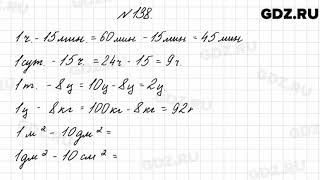 GDZ.RU
№138.
1ч. - 15мин. = 60мин - 15мин = 45мин.
1сут. - 15ч. = 24ч - 15 = 9ч.
1т. - 8ц = 10ц - 8ц = 2ц.
1ц - 8кг = 100кг - 8кг = 92к
1м² - 10дм² =
1дм² - 10см² =
GDZ.RU